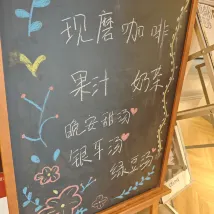 现磨咖啡
果汁 奶茶
晚安甜汤
银耳汤
绿豆汤